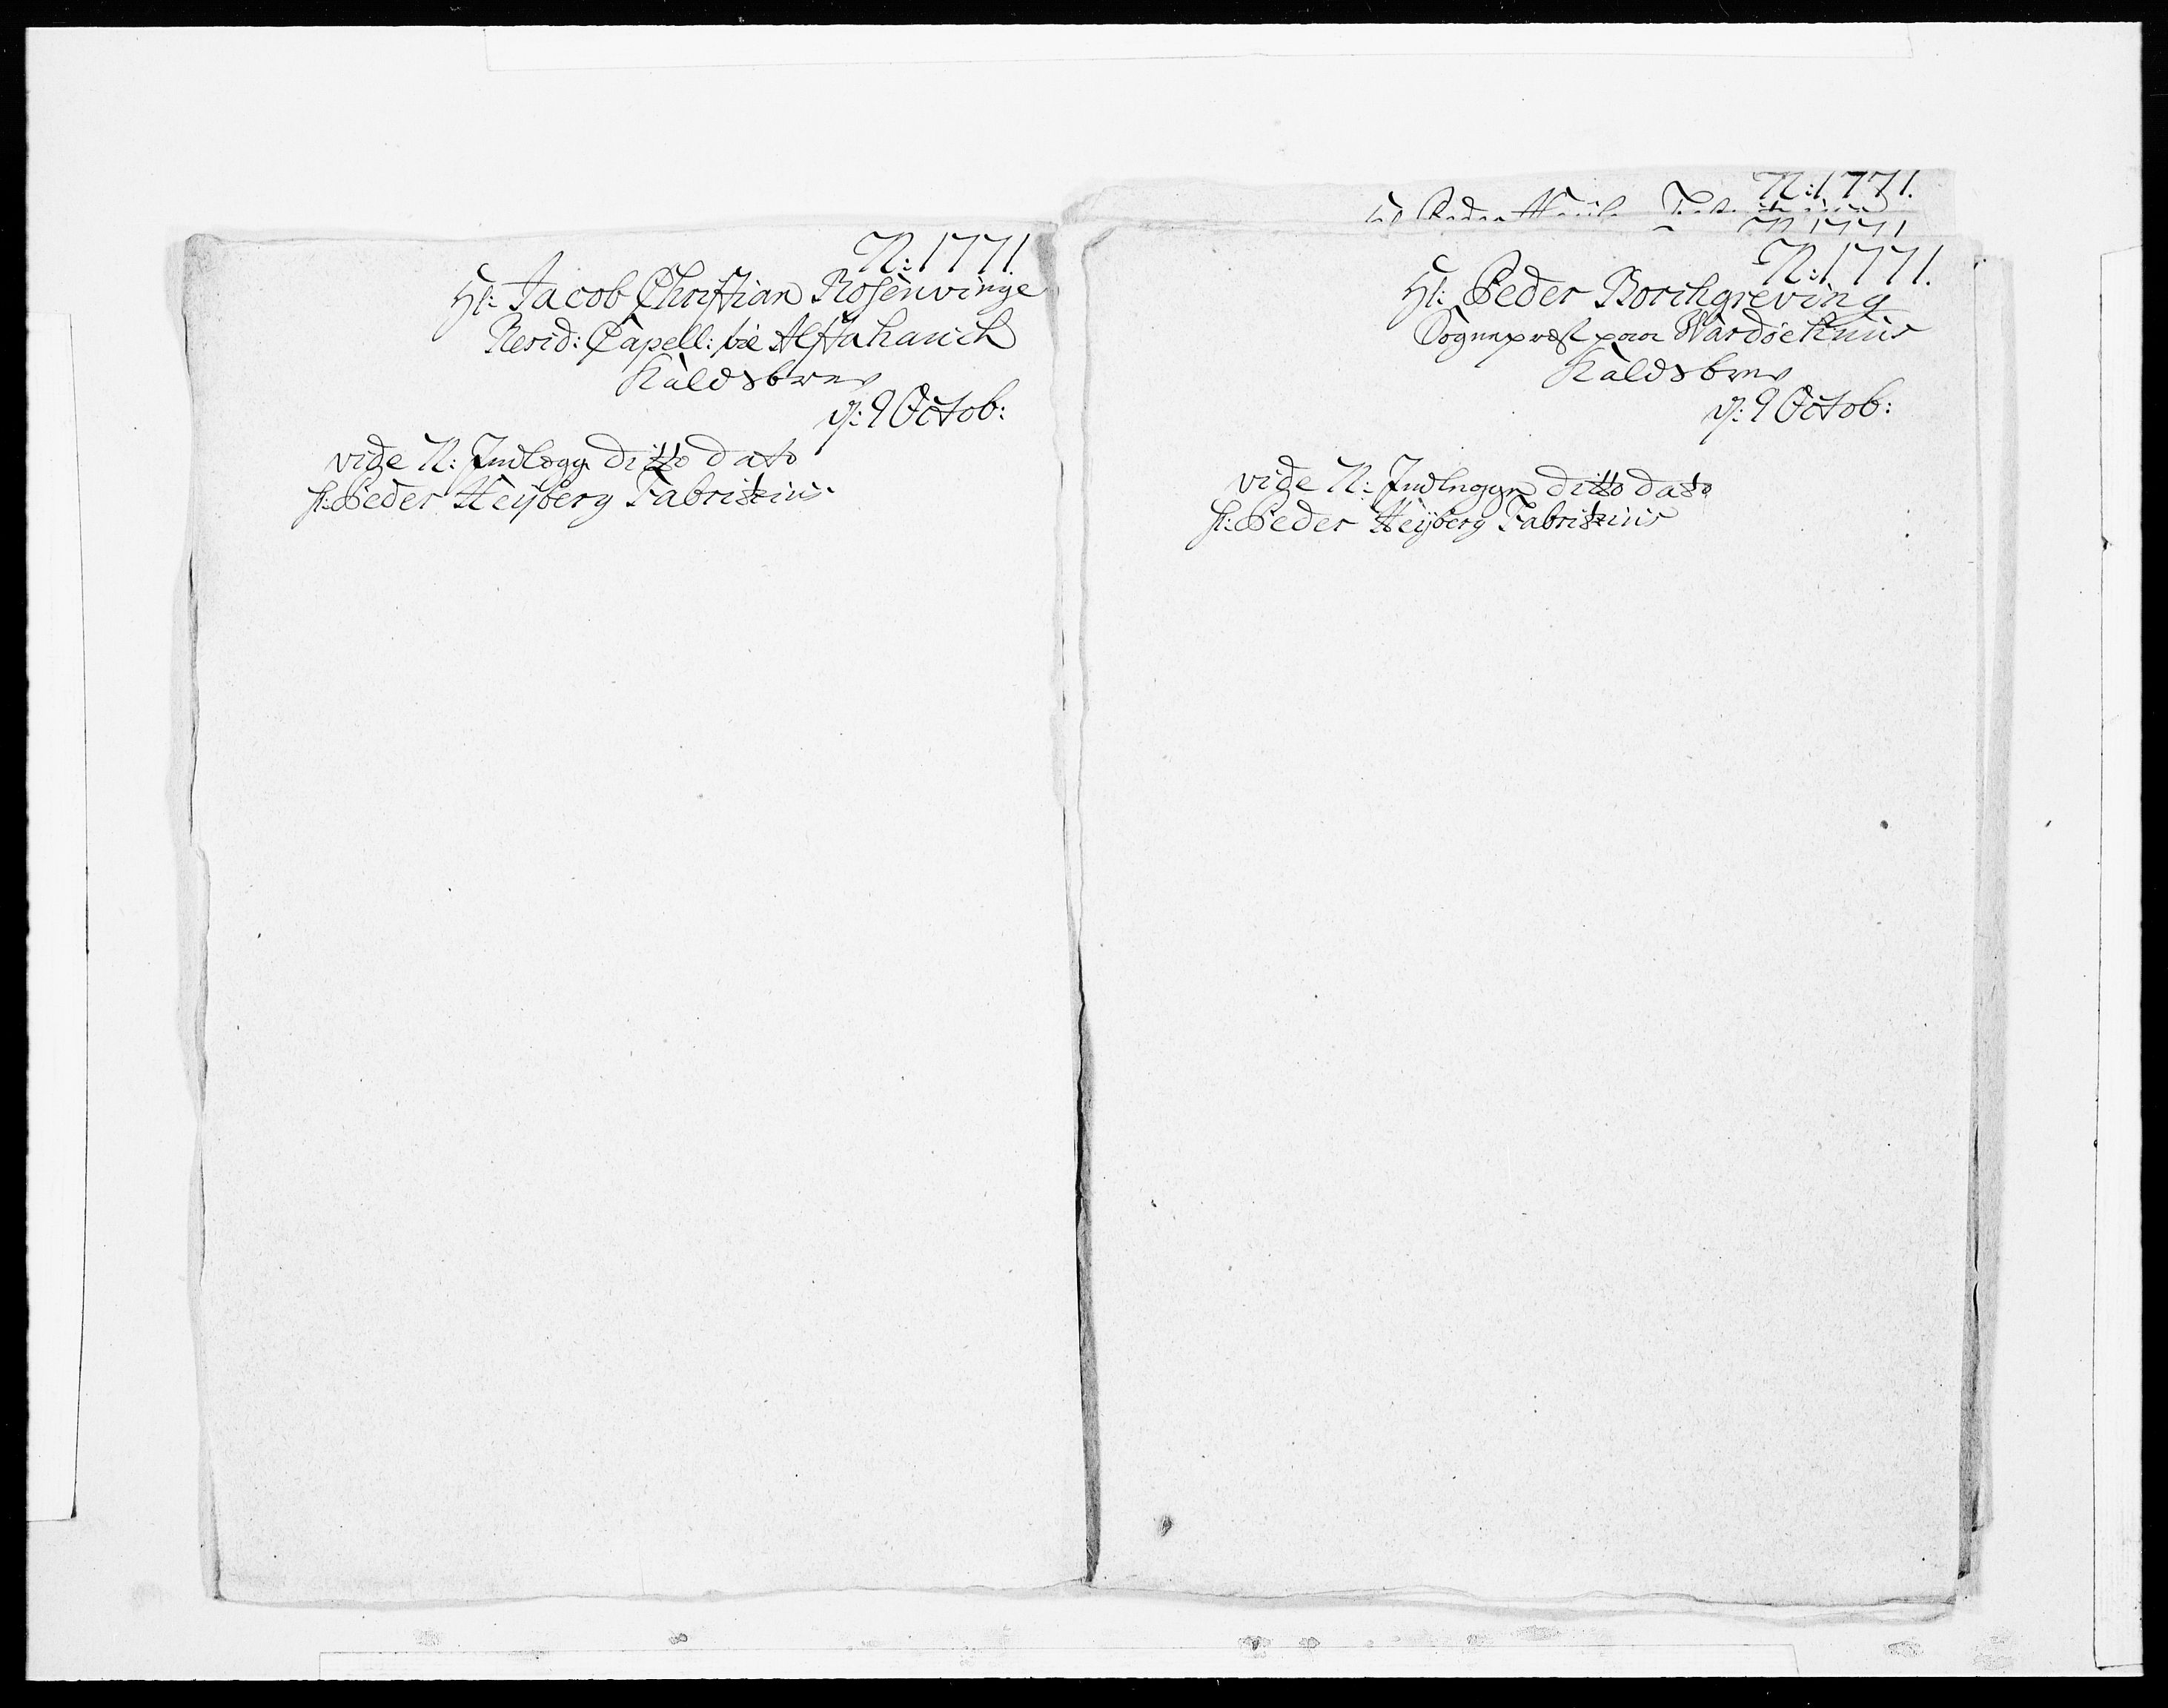 N: 1771.
Hr: Jacob Christian Rosenvinge
Resid: Capell: til Alstahauch
Kaldsbrev
d: 9 Octob:
vide N: Indlegg ditto dato
hr: Peder Heyberg Fabritzius.
N: 1771.
N: 1771
N: 1771.
Hr: Peder Borchgreving
Sogneprest paa Wardöehuus
Kaldsbrev
d: 9 Octob:
vide N: Indlegg ditto dato
hr: Peder Heyberg Fabritzius